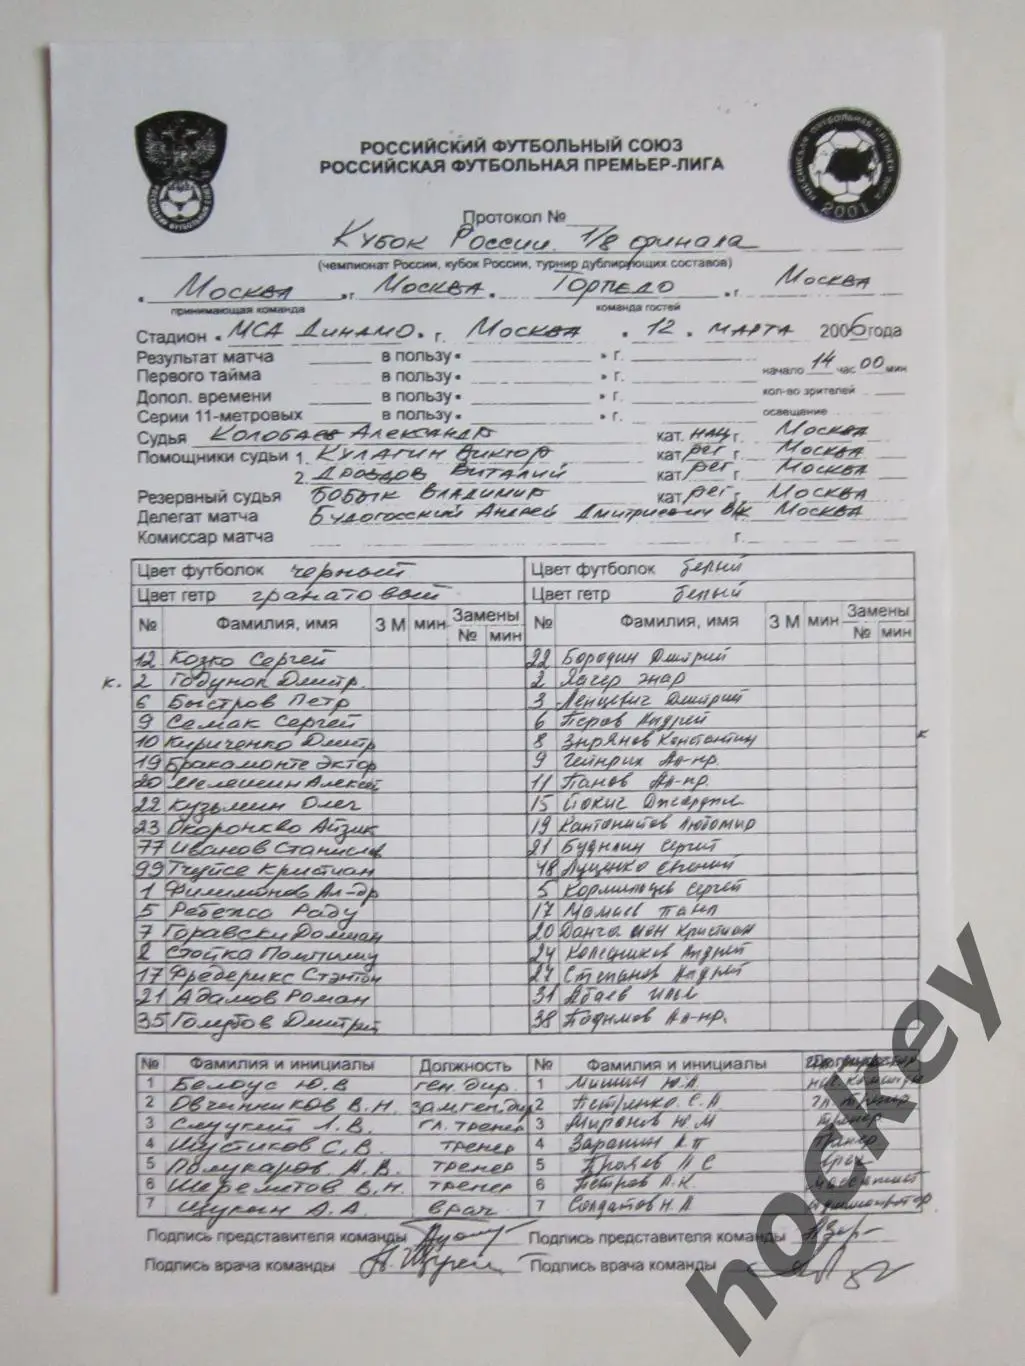 РОССИЙСКИЙ ФУТБОЛЬНЫЙ СОЮЗ
РОССИЙСКАЯ ФУТБОЛЬНАЯ ПРЕМЬЕР-ЛИГА
2001
Протокол №
Кубок России 1/8 финала
(чемпионат России, кубок России, турнир дублирующих составов)
Москва г. Москва Торпедо г. Москва
принимающая команда команда гостей
Стадион МСА Динамо г. Москва 12 марта 2006 года
Результат матча в пользу г. начало 14 час 00 мин
Первого тайма в пользу г.
Допол. времени в пользу г. кол-во зрителей
Серии 11-метровых в пользу г. освещение
Судья Колобаев Александр кат. нац г. Москва
Помощники судьи 1. Кулагин Виктор кат. рег г. Москва
2. Дроздов Виталий кат. рег г. Москва
Резервный судья Бобык Владимир кат. рег г. Москва
Делегат матча Будогосский Андрей Дмитриевич г. Москва
Комиссар матча г.
Цвет футболок черный Цвет футболок белый
Цвет гетр гранатовый Цвет гетр белый
№ Фамилия, имя З М мин Замены № мин № Фамилия, имя З М мин Замены № мин
12 Козко Сергей 22 Бородин Дмитрий
к. 2 Годунок Дмитр. 2 Яагер Энар
6 Быстров Петр 3 Ленцевич Дмитрий
9 Семак Сергей 6 Перов Андрей
10 Кириченко Дмитр 8 Зырянов Константин к
19 Бракамонте Эктор 9 Гейнрих Ал-др.
20 Мелешин Алексей 11 Панов Ал-др.
22 Кузьмин Олег 15 Йокич Джорджи
23 Окоронкво Айзик 19 Кантонистов Любомир
77 Иванов Станислав 21 Будылин Сергей
99 Тчуйсе Кристиан 48 Луценко Евгений
1 Филимонов Ал-др 5 Кормильцев Сергей
5 Ребежа Раду 17 Мамаев Павел
7 Горавски Домиан 20 Данча Ион Кристиан
2 Стойка Помпилиу 24 Колесников Андрей
17 Фредерикс Стэнтон 27 Степанов Андрей
21 Адамов Роман 31 Абаев Илья
35 Голубов Дмитрий 38 Подымов Ал-др.
№ Фамилия и инициалы Должность № Фамилия и инициалы
1 Белоус Ю.В ген. дир. 1 Мишин Ю.А. нач команды
2 Овчинников В.Н. зам ген. дир 2 Петренко С.А гл. тренер
3 Слуцкий Л.В. гл. тренер 3 Миронов Ю.М тренер
4 Шустиков С.В. тренер 4 Зарапин А.П тренер
5 Полукаров А.В. тренер 5 Прояев А С врач
6 Шереметов В.Н. тренер 6 Петров А.К. массажист
7 Щукин А.А. врач 7 Солдатов Н.А администратор
Подпись представителя команды Подпись представителя команды
Подпись врача команды Подпись врача команды
hockey